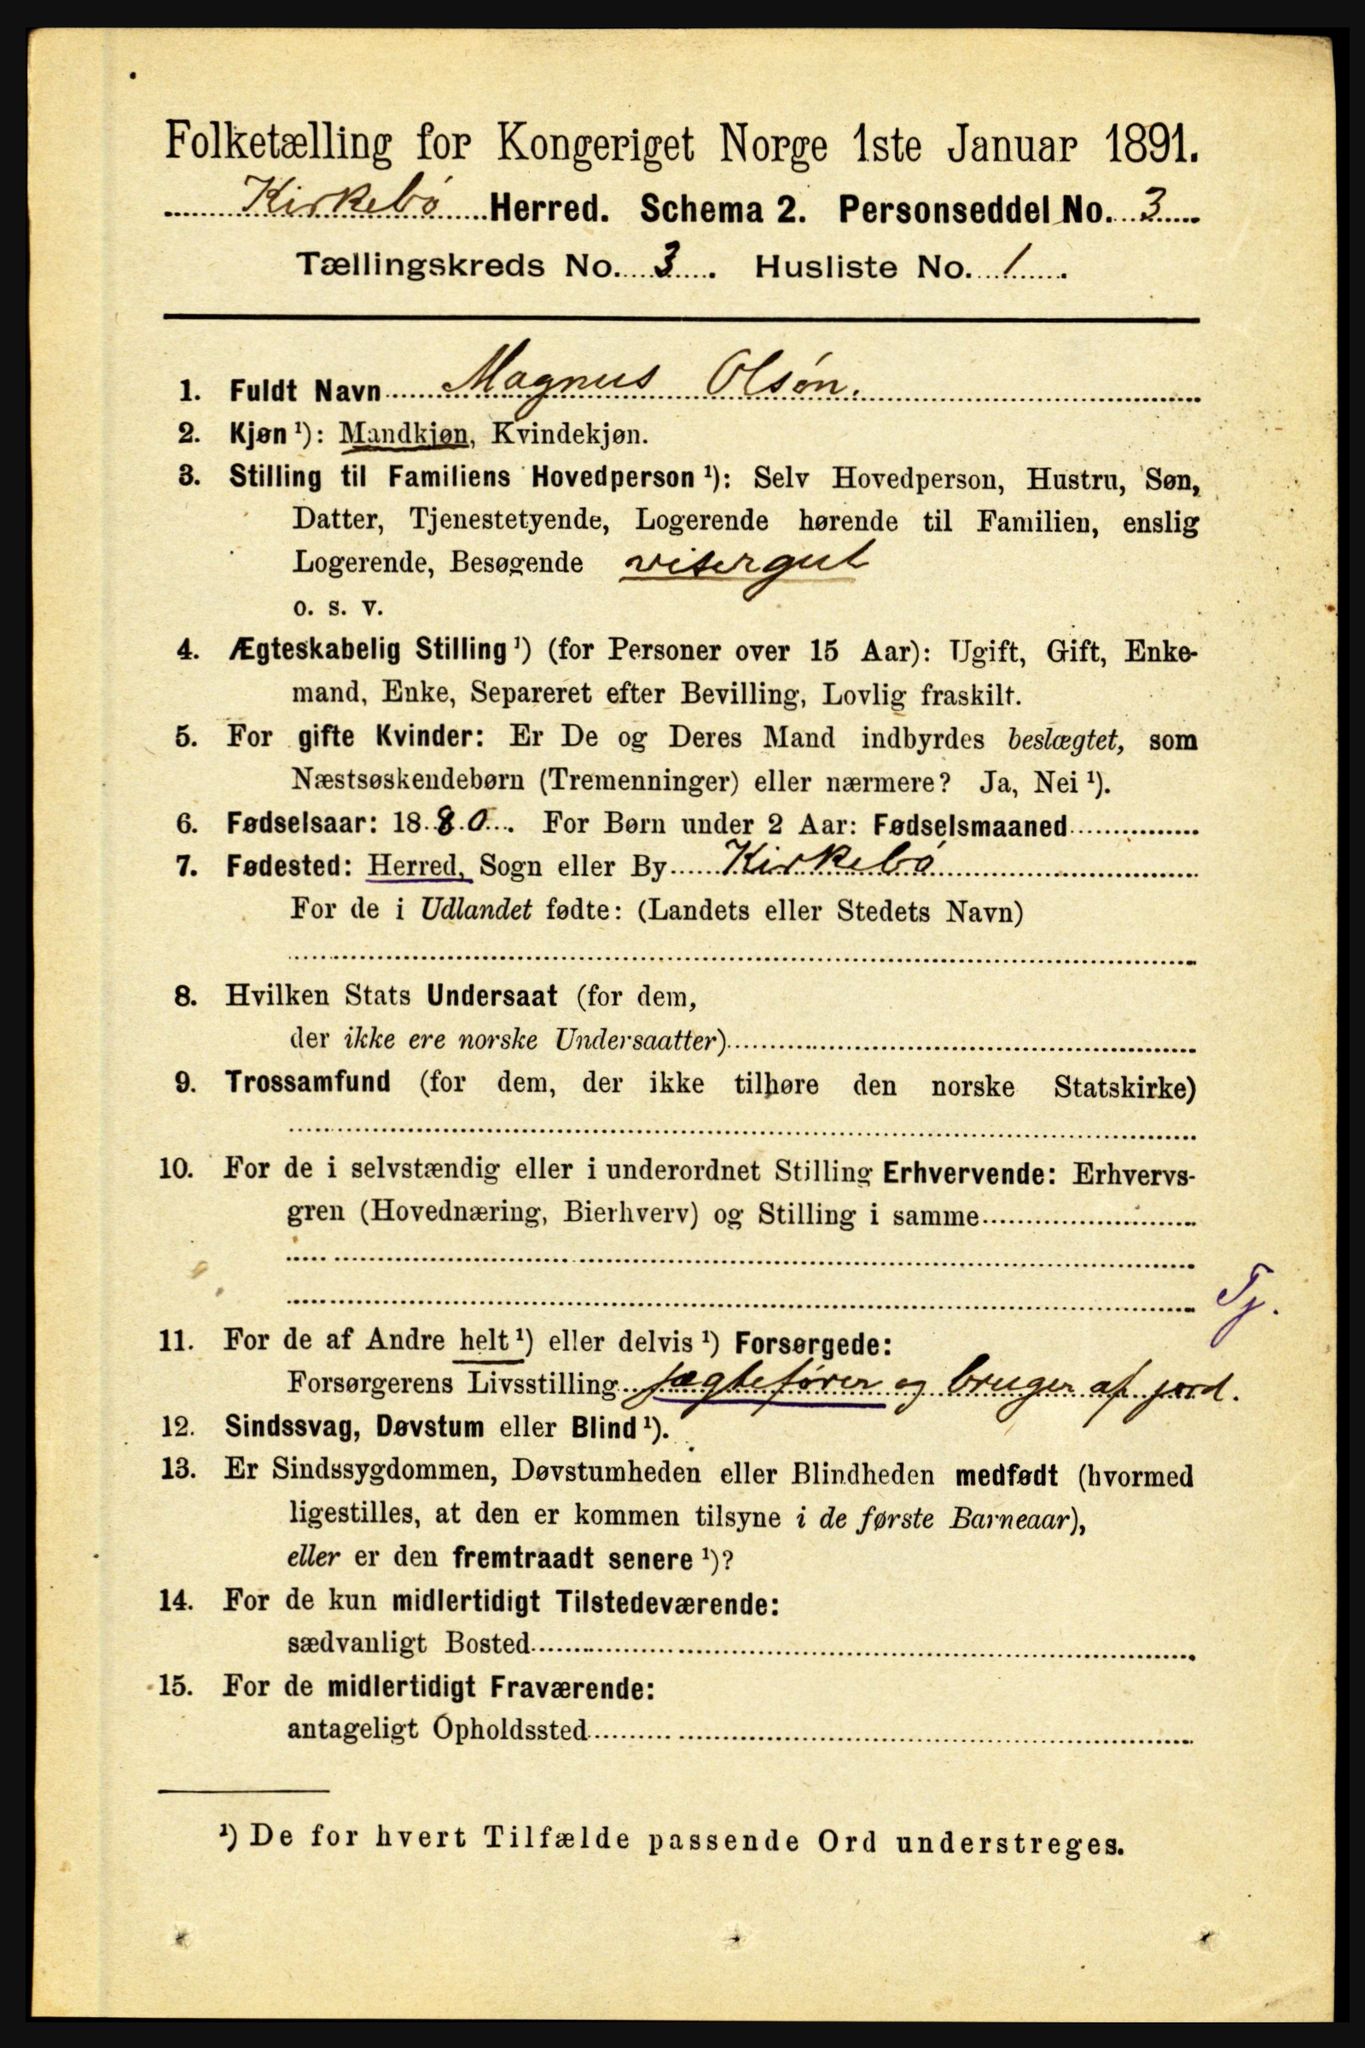 Folketælling for Kongeriget Norge 1ste Januar 1891.
Kirkebø Herred. Schema 2. Personseddel No. 3
Tællingskreds No. 3. Husliste No. 1.
1. Fuldt Navn Magnus Olsøn.
2. Kjøn ¹): Mandkjøn, Kvindekjøn.
3. Stilling til Familiens Hovedperson ¹): Selv Hovedperson, Hustru, Søn,
Datter, Tjenestetyende, Logerende hørende til Familien, enslig
Logerende, Besøgende visergut
o. s. v.
4. Ægteskabelig Stilling ¹) (for Personer over 15 Aar): Ugift, Gift, Enke-
mand, Enke, Separeret efter Bevilling, Lovlig fraskilt.
5. For gifte Kvinder: Er De og Deres Mand indbyrdes beslægtet, som
Næstsøskendebørn (Tremenninger) eller nærmere? Ja, Nei ¹).
6. Fødselsaar: 1880. For Børn under 2 Aar: Fødselsmaaned
7. Fødested: Herred, Sogn eller By Kirkebø
For de i Udlandet fødte: (Landets eller Stedets Navn)
8. Hvilken Stats Undersaat (for dem,
der ikke ere norske Undersaatter)
9. Trossamfund (for dem, der ikke tilhøre den norske Statskirke)
10. For de i selvstændig eller i underordnet Stilling Erhvervende: Erhvervs-
gren (Hovednæring, Bierhverv) og Stilling i samme
Tj.
11. For de af Andre helt ¹) eller delvis ¹) Forsørgede:
Forsørgerens Livsstilling jægtefører og bruger af jord.
12. Sindssvag, Døvstum eller Blind ¹).
13. Er Sindssygdommen, Døvstumheden eller Blindheden medfødt (hvormed
ligestilles, at den er kommen tilsyne i de første Barneaar),
eller er den fremtraadt senere ¹)?
14. For de kun midlertidigt Tilstedeværende:
sædvanligt Bosted
15. For de midlertidigt Fraværende:
antageligt Opholdssted
¹) De for hvert Tilfælde passende Ord understreges.